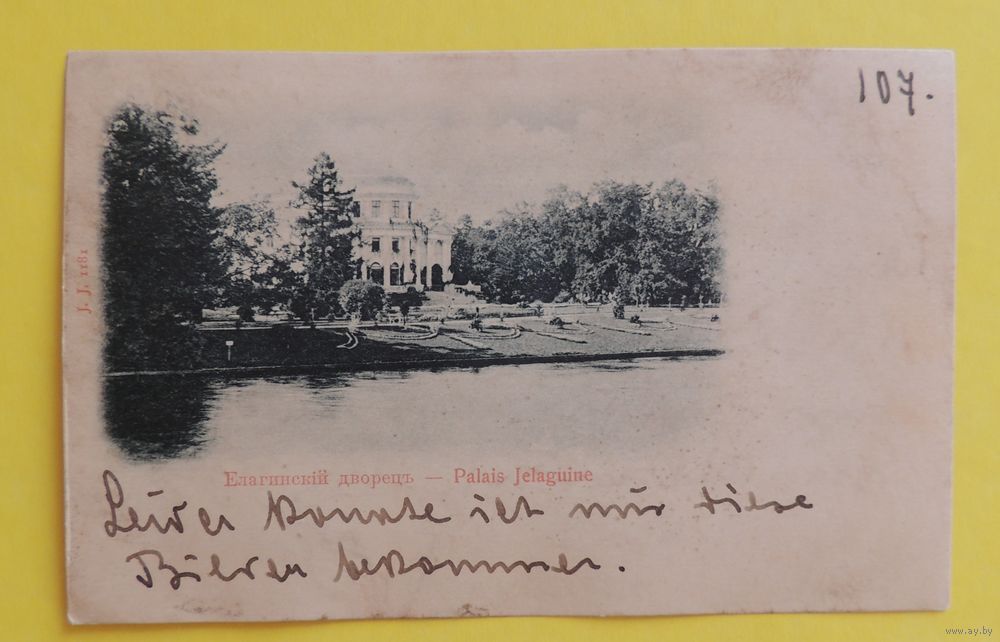 107.
J. J. 1181
Елагинскій дворецъ — Palais Jelaguine
Leider konnte ich nur diese
Bilder bekommen.
www.ay.by